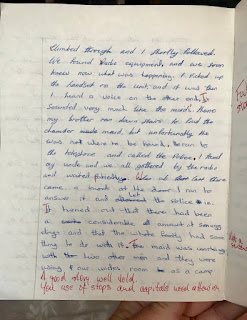 Climbed through and I shortly followed.
We found radio equipment and we soon
knew now what was happening. I Picked up
the handset to the unit and it was then
I heard a voice on the other end. It
Sounded very much like the maids. Henry
my brother ran down stairs to find the
chamber made maid, but unfortunately she
was not where to be found. He ran to
the telephone and called the Police. I found
my uncle and we all gathered by the radio
and waited patiently. there
came a knock at the door. I ran to
answer it and Let the police in.
It turned out that there had been
a considerable amount of smuggling
and that the whole family had some
thing to do with it. The maid was working
with two other men and they were
using our uncles room as a camp
A good story well told.
You use of stops and capitals need attention